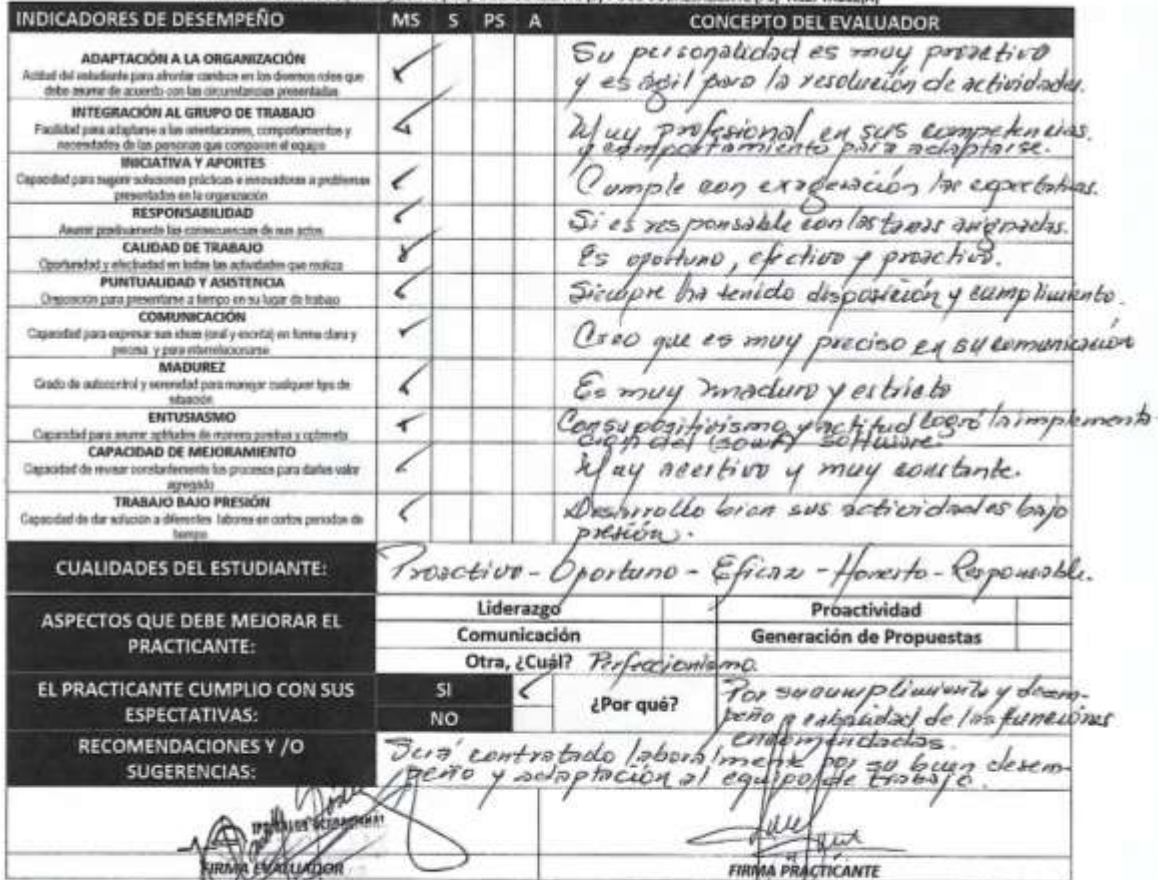 INDICADORES DE DESEMPEÑO MS S PS A CONCEPTO DEL EVALUADOR
ADAPTACIÓN A LA ORGANIZACIÓN
Actitud del estudiante para afrontar cambios en los diversos roles que
debe asumir de acuerdo con las circunstancias presentadas
Su personalidad es muy proactivo
y es ágil para la resolución de actividades.
INTEGRACIÓN AL GRUPO DE TRABAJO
Facilidad para adaptarse a las orientaciones, comportamientos y
necesidades de las personas que componen el equipo
Muy profesional en sus competencias
y comportamiento para adaptarse.
INICIATIVA Y APORTES
Capacidad para sugerir soluciones prácticas e innovadoras a problemas
presentados en la organización
Cumple con exageración las expectativas.
RESPONSABILIDAD
Asumir positivamente las consecuencias de sus actos
Si es responsable con las tareas asignadas.
CALIDAD DE TRABAJO
Oportunidad y efectividad en todas las actividades que realiza
Es oportuno, efectivo y proactivo.
PUNTUALIDAD Y ASISTENCIA
Disposición para presentarse a tiempo en su lugar de trabajo
Siempre ha tenido disposición y cumplimiento.
COMUNICACIÓN
Capacidad para expresar sus ideas (oral y escrita) en forma clara y
precisa y para interrelacionarse
Creo que es muy preciso en su comunicación
MADUREZ
Grado de autocontrol y serenidad para manejar cualquier tipo de
situación
Es muy maduro y estricto
ENTUSIASMO
Capacidad para asumir aptitudes de manera positiva y optimista
Con su positivismo y actitud logró la implementa-
ción del software.
CAPACIDAD DE MEJORAMIENTO
Capacidad de revisar constantemente los procesos para darles valor
agregado
Muy acertivo y muy constante.
TRABAJO BAJO PRESIÓN
Capacidad de dar solución a diferentes labores en cortos periodos de
tiempo
Desarrollo bien sus actividades bajo
presión.
CUALIDADES DEL ESTUDIANTE: Proactivo - Oportuno - Eficaz - Honesto - Responsable.
ASPECTOS QUE DEBE MEJORAR EL
PRACTICANTE:
Liderazgo Proactividad
Comunicación Generación de Propuestas
Otra, ¿Cuál? Perfeccionismo.
EL PRACTICANTE CUMPLIO CON SUS
ESPECTATIVAS:
SI
NO
¿Por qué?
Por su cumplimiento y desem-
peño a cabalidad de las funciones
encomendadas.
RECOMENDACIONES Y /O
SUGERENCIAS:
Será contratado laboralmente por su buen desem-
peño y adaptación al equipo de trabajo.
FIRMA EVALUADOR FIRMA PRACTICANTE